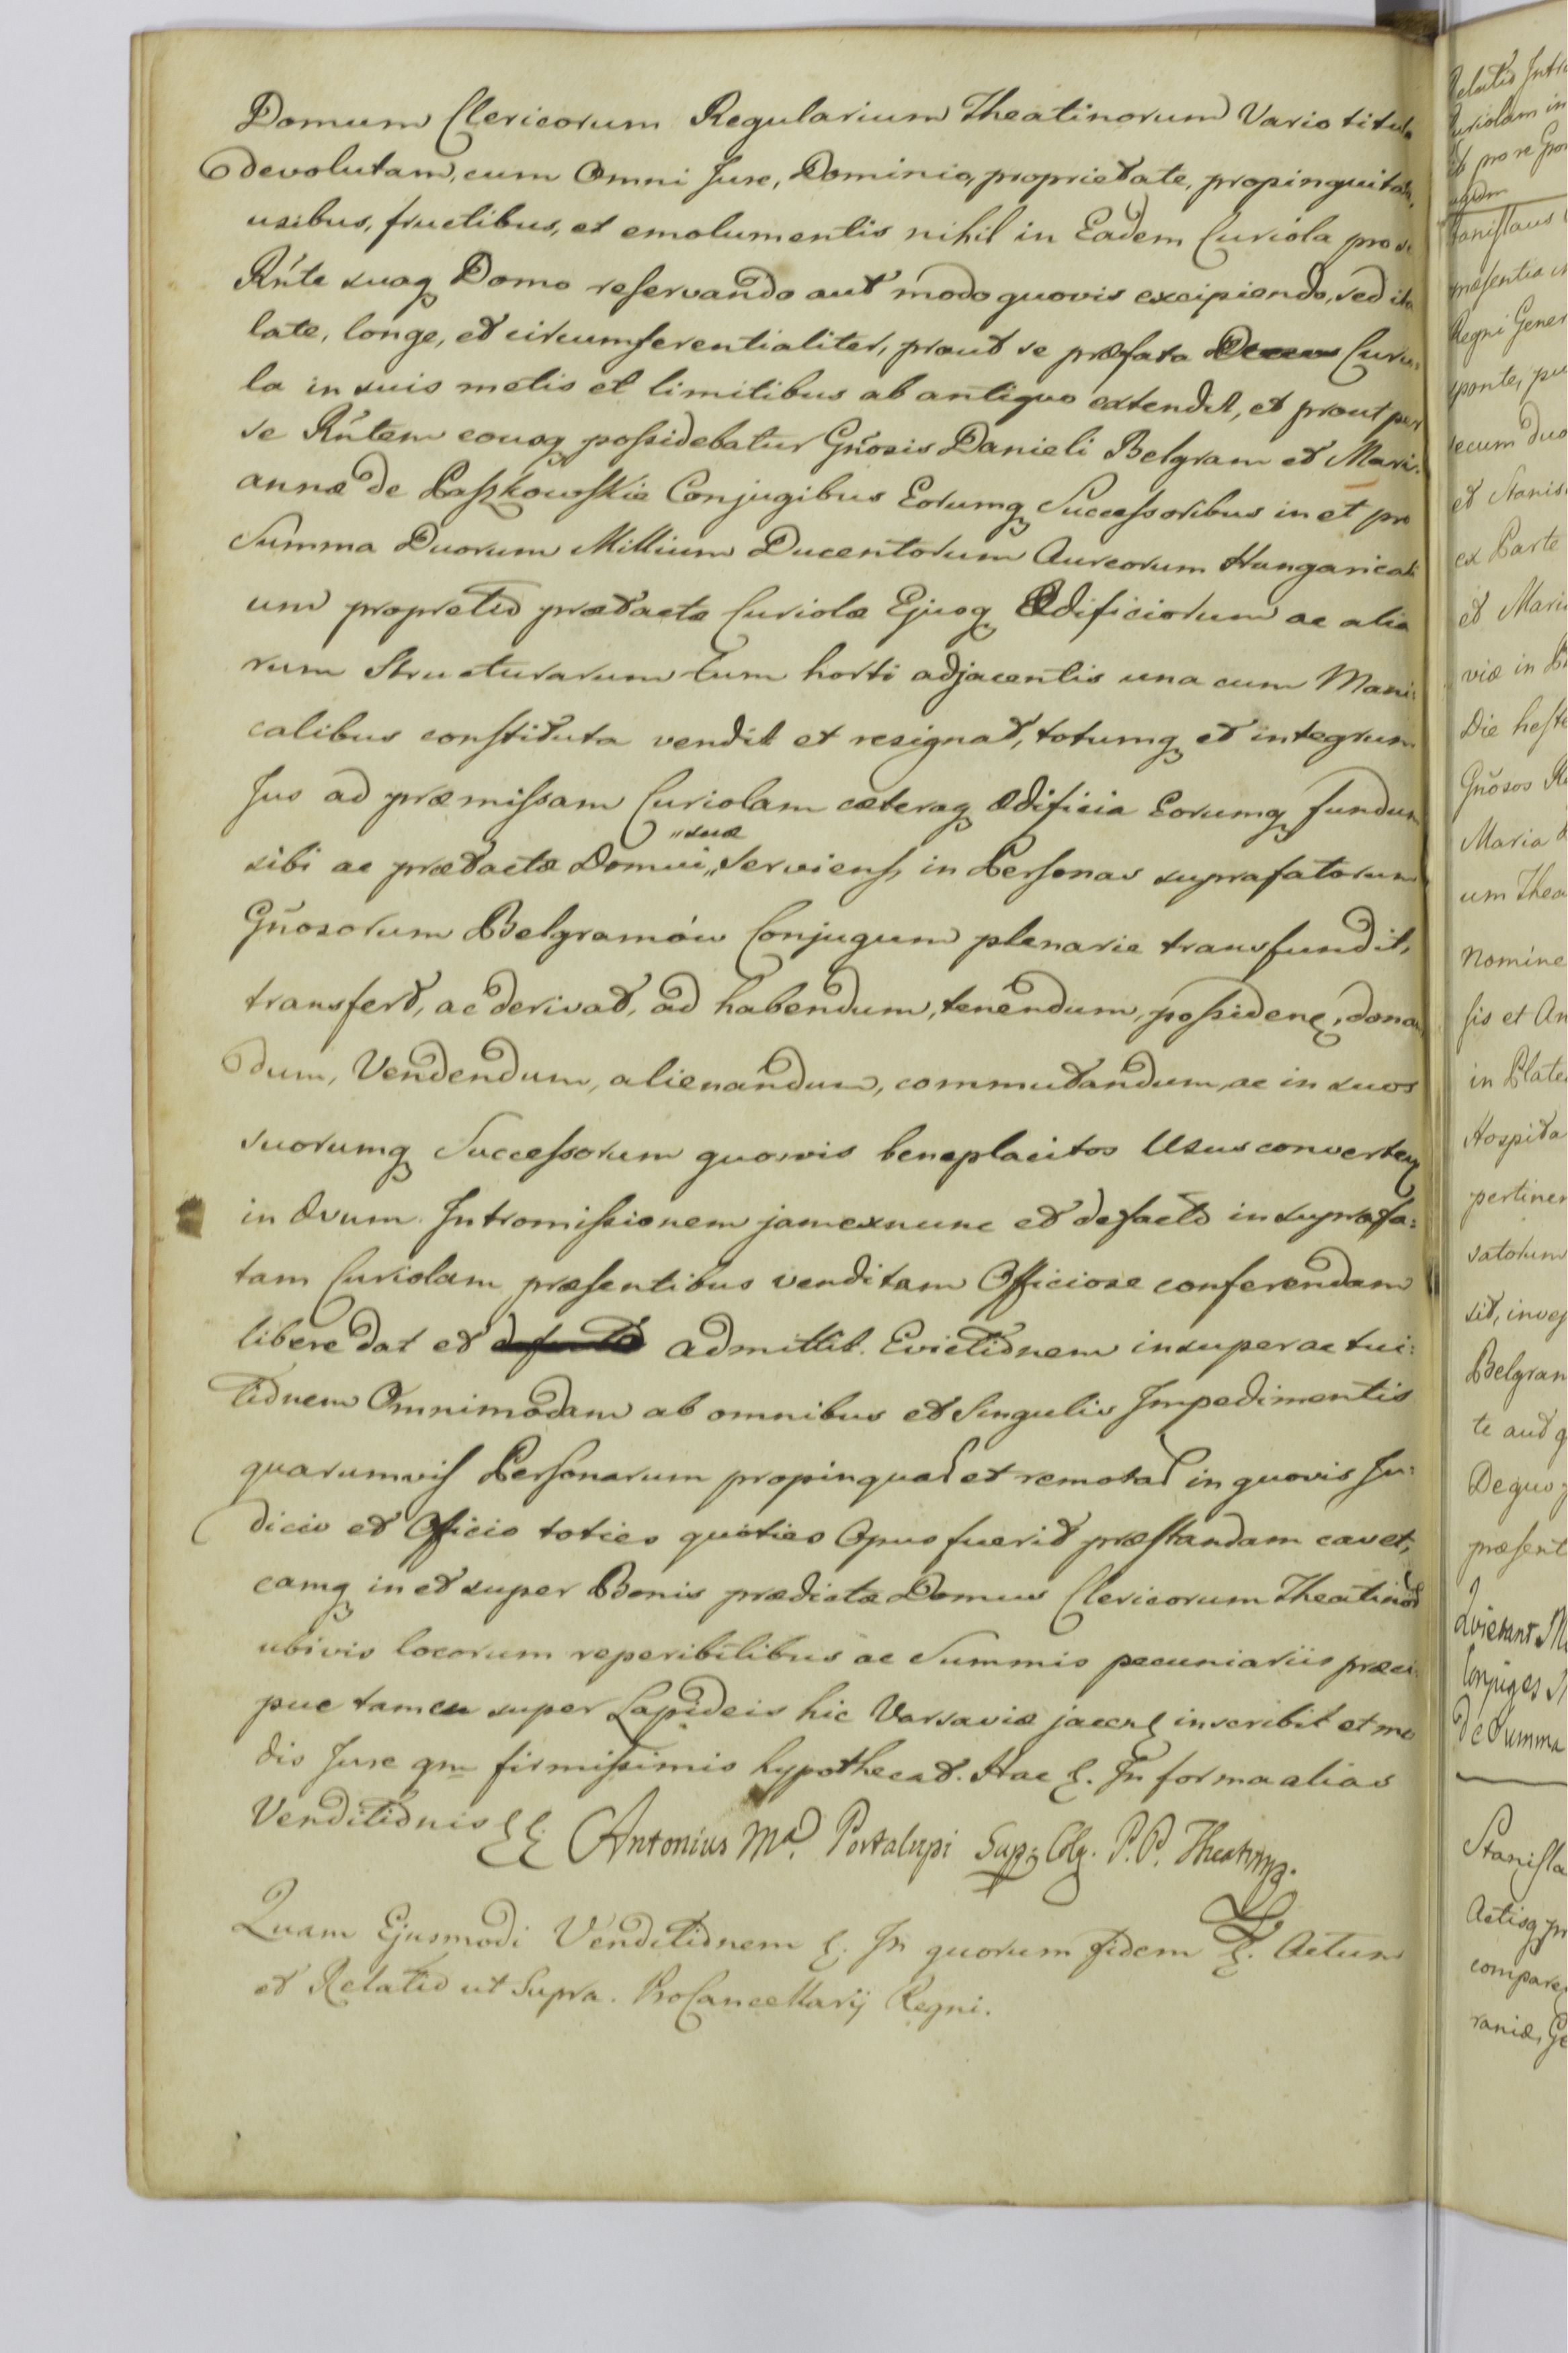 Domum Clericorum Regularium Theatinorum Vario titulo
devolutam, cum Omni Jure, Dominio, proprietate, propinquitate,
usibus, fructibus, et emolumentis nihil in Eadem Curiola pro se
Rnte suaq Domo reservando aut modo quovis excipiendo, sed ita
late, longe, et circumferentialiter, prout se præfata Curio:
la in suis metis et limitibus ab antiquo extendit, et prout per
se Rntem eousq possidebatur Gnosis Danieli Belgram et Mari:
annæ de Paszkowskie Conjugibus Eorumq Successoribus in et pro
Summa Duorum Millium Ducentorum Aureorum Hungaricali
um propretio prætactæ Curiolæ Ejusq Ædificiorum ac alia
rum Structurarum tum horti adjacentis una cum Mani:
calibus constituta vendit et resignat, totumq et integrum
Jus ad præmissam Curiolam cæteraq Ædificia Eorumq fundum
sibi ac prætactæ Domui „suæ Serviens, in Personas suprafatorum
Gnosorum Belgramów Conjugum plenarie transfundit,
transfert, ac derivat, ad habendum, tenendum, possidenę, donan
dum, Vendendum, alienandum, commutandum, ac in suos
suorumq Successorum quosvis beneplacitos Usus converten
in ævum. Intromissionem jamexnunc et defacto in suprafa:
tam Curiolam præsentibus venditam Officiose conferendam
libere dat et admittit. Evictionem insuper ac tui:
tionem Omnimodam ab omnibus et Singulis Impedimentis
quarumvis Personarum propinquar et remotar in quovis Ju:
dicio et Officio toties quoties Opus fuerit præstandam cavet,
eamq in et super Bonis prædictæ Domus Clericorum Theatinor
ubivis locorum reperibilibus ac Summis pecuniariis præci
pue tamen super Lapideis hic Varsaviæ jacen inscribit et mo
dis Jure qm firmissimis hypothecat. Hac &. In forma alias
Venditionis && Antonius Ma. Portalupi Sup: Colg. P. P. Theatinq.
Quam Ejusmodi Venditionem &. In quorum fidem &. Actum
et Relatio ut Supra. ProCancellarij Regni.